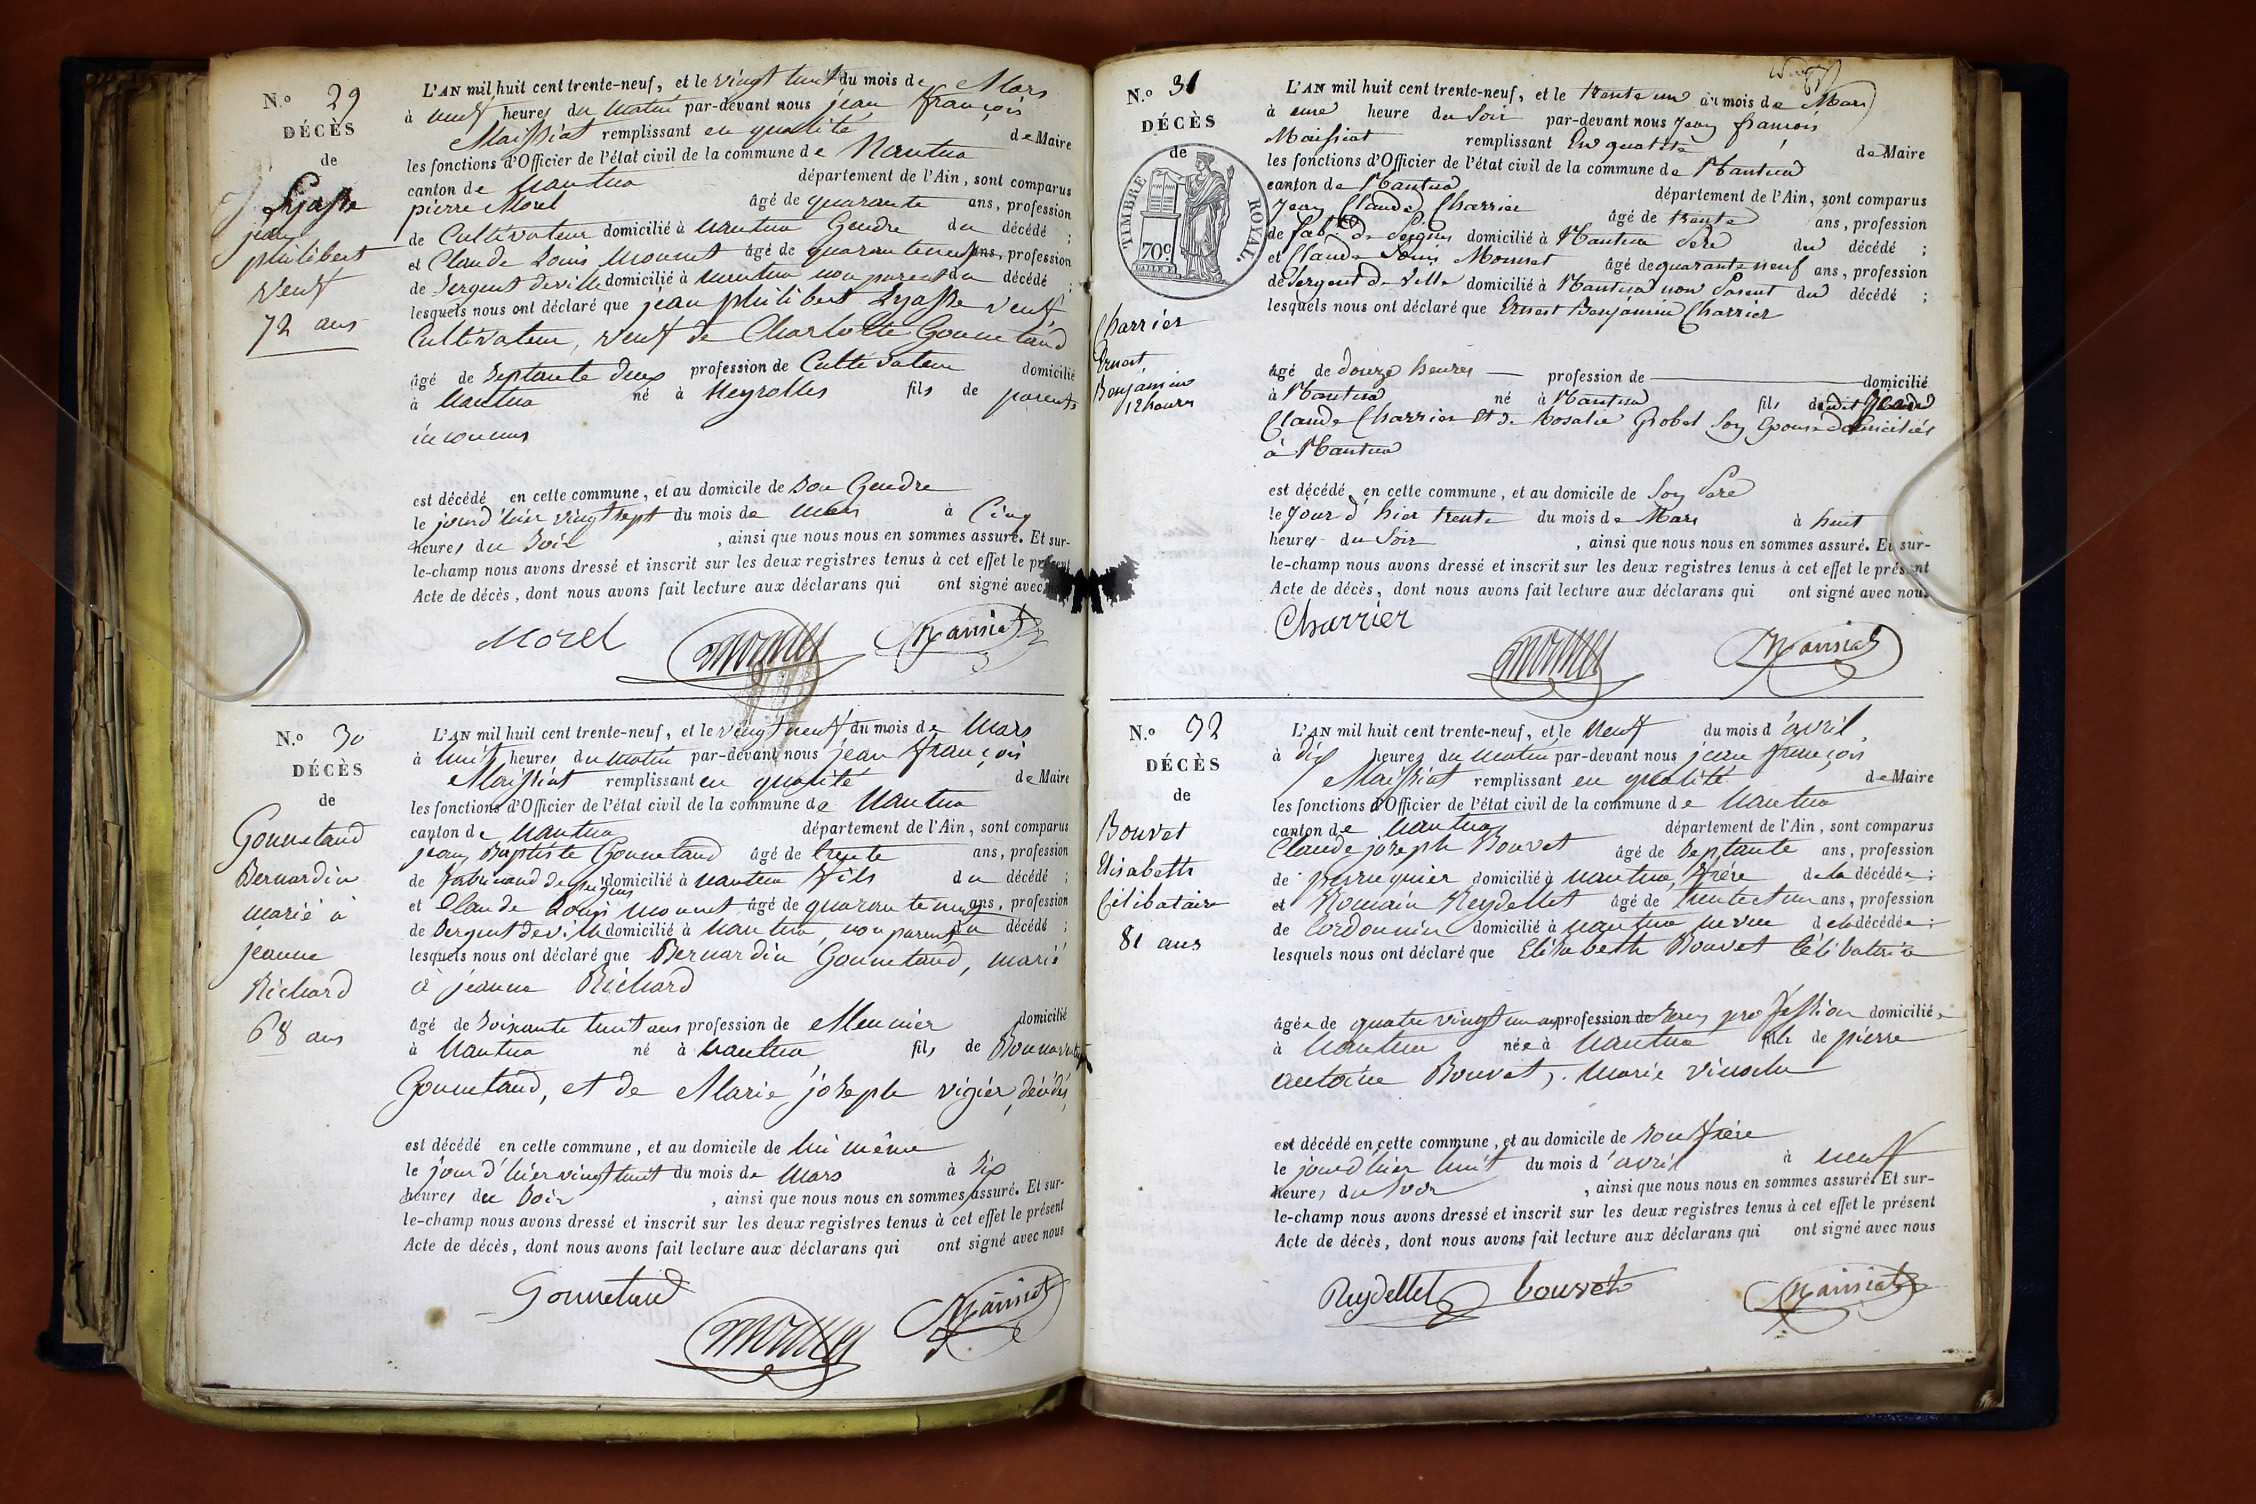 N.o 29
DÉCÈS
de
Lyasse
jean
philibert
veuf
72 ans
L'AN mil huit cent trente-neuf, et le vingt huit du mois de Mars
à neuf heures du matin par-devant nous jean françois
Maissiat remplissant en qualité de Maire
les fonctions d'Officier de l'état civil de la commune de Nantua
canton de Nantua département de l'Ain, sont comparus
pierre Morel âgé de quarante ans, profession
de Cultivateur domicilié à Nantua Gendre du décédé ;
et Claude Louis Mounet âgé de quarante neuf ans, profession
de Sergent deville domicilié à Nantua non parent du décédé ;
lesquels nous ont déclaré que jean philibert Lyasse veuf
Cultivateur, veuf de Charlotte Gounetand
âgé de Septante deux profession de Cultivateur domicilié
à Nantua né à Neyrolles fils de parents
inconnus
est décédé en cette commune, et au domicile de son Gendre
le jour d'hier vingt sept du mois de Mars à Cinq
heures du Soir , ainsi que nous nous en sommes assuré. Et sur-
le-champ nous avons dressé et inscrit sur les deux registres tenus à cet effet le présent
Acte de décès, dont nous avons fait lecture aux déclarans qui ont signé avec
Morel Mounet Maissiat
N.o 30
DÉCÈS
de
Gounetand
Bernardin
marié à
jeanne
Richard
68 ans
L'AN mil huit cent trente-neuf, et le vingt neuf du mois de Mars
à huit heures du matin par-devant nous jean françois
Maissiat remplissant en qualité de Maire
les fonctions d'Officier de l'état civil de la commune de Nantua
canton de Nantua département de l'Ain, sont comparus
jean Baptiste Gounetand âgé de trente ans, profession
de fabricand de peignes domicilié à Nantua fils du décédé ;
et Claude Louis Mounet âgé de quarante neuf ans, profession
de Sergent deville domicilié à Nantua, non parent du décédé ;
lesquels nous ont déclaré que Bernardin Gounetand, marié
à jeanne Richard
âgé de Soixante huit ans profession de Meunier domicilié
à Nantua né à Nantua fils de Bonnaventure
Gounetand, et de Marie joseph vigier, décédés,
est décédé en cette commune, et au domicile de lui même
le jour d'hier vingt huit du mois de Mars à Six
heures du Soir , ainsi que nous nous en sommes assuré. Et sur-
le-champ nous avons dressé et inscrit sur les deux registres tenus à cet effet le présent
Acte de décès, dont nous avons fait lecture aux déclarans qui ont signé avec nous
Gounetand Mounet Maissiat
N.o 31
DÉCÈS
de
TIMBRE ROYAL.
70c
Charrier
Ernest
Benjamin
12 heures
L'AN mil huit cent trente-neuf, et le trente un du mois de Mars
à une heure du Soir par-devant nous Jean françois
Maissiat remplissant En qualité de Maire
les fonctions d'Officier de l'état civil de la commune de Nantua
canton de Nantua département de l'Ain, sont comparus
Jean Claude Charrier âgé de trente ans, profession
de fab.t de Peignes domicilié à Nantua Père du décédé ;
et Claude Louis Mounet âgé de quarante neuf ans, profession
de Sergent de Ville domicilié à Nantua non Parent du décédé ;
lesquels nous ont déclaré que Ernest Benjamin Charrier
âgé de douze heures profession de domicilié
à Nantua né à Nantua fils dudit Jean
Claude Charrier et de Rosalie Grobet Son Epouse domiciliés
à Nantua
est décédé en cette commune, et au domicile de Son Père
le Jour d'hier trente du mois de Mars à huit
heures du Soir , ainsi que nous nous en sommes assuré. Et sur-
le-champ nous avons dressé et inscrit sur les deux registres tenus à cet effet le présent
Acte de décès, dont nous avons fait lecture aux déclarans qui ont signé avec nous
Charrier Mounet Maissiat
N.o 32
DÉCÈS
de
Bouvet
Elisabeth
Célibataire
81 ans
L'AN mil huit cent trente-neuf, et le Neuf du mois d'avril
à dix heures du matin par-devant nous jean françois
Maissiat remplissant en qualité de Maire
les fonctions d'Officier de l'état civil de la commune de Nantua
canton de Nantua département de l'Ain, sont comparus
Claude joseph Bouvet âgé de Septante ans, profession
de perruquier domicilié à Nantua, frère de la décédée ;
et Romain Reydellet âgé de trente et un ans, profession
de Cordonnier domicilié à Nantua neveu de la décédée ;
lesquels nous ont déclaré que Elisabeth Bouvet Célibataire
âgée de quatre vingt un ans profession de Sans profession domiciliée
à Nantua née à Nantua fille de pierre
antoine Bouvet, . Marie vinochu
est décédé en cette commune, et au domicile de son frère
le jour d'hier huit du mois d'avril à neuf
heures du Soir , ainsi que nous nous en sommes assuré. Et sur-
le-champ nous avons dressé et inscrit sur les deux registres tenus à cet effet le présent
Acte de décès, dont nous avons fait lecture aux déclarans qui ont signé avec nous
Reydellet bouvet Maissiat